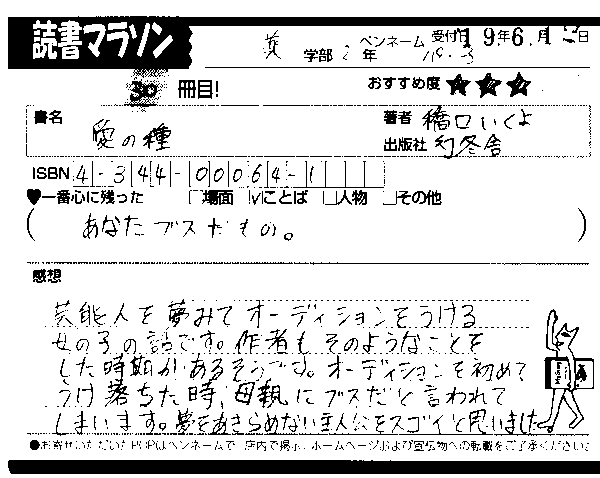 読書マラソン
英 学部 2 年 ペンネーム 受付 19年6月12日
30 冊目! おすすめ度 ★★★
書名 愛の種
著者 橋口いくよ
出版社 幻冬舎
ISBN 4-344-00064-1
♥一番心に残った □場面 ☑ことば □人物 □その他
(あなたブスだもの。)
感想
芸能人を夢みてオーディションをうける
女の子の話です。作者もそのようなことを
した時期があるそうです。オーディションを初めて
うけ落ちた時、母親にブスだと言われて
しまいます。夢をあきらめない主人公をスゴイと思いました。
●お寄せいただいたPOPはペンネームで、店内で掲示、ホームページおよび宣伝物への転載をご了承ください。